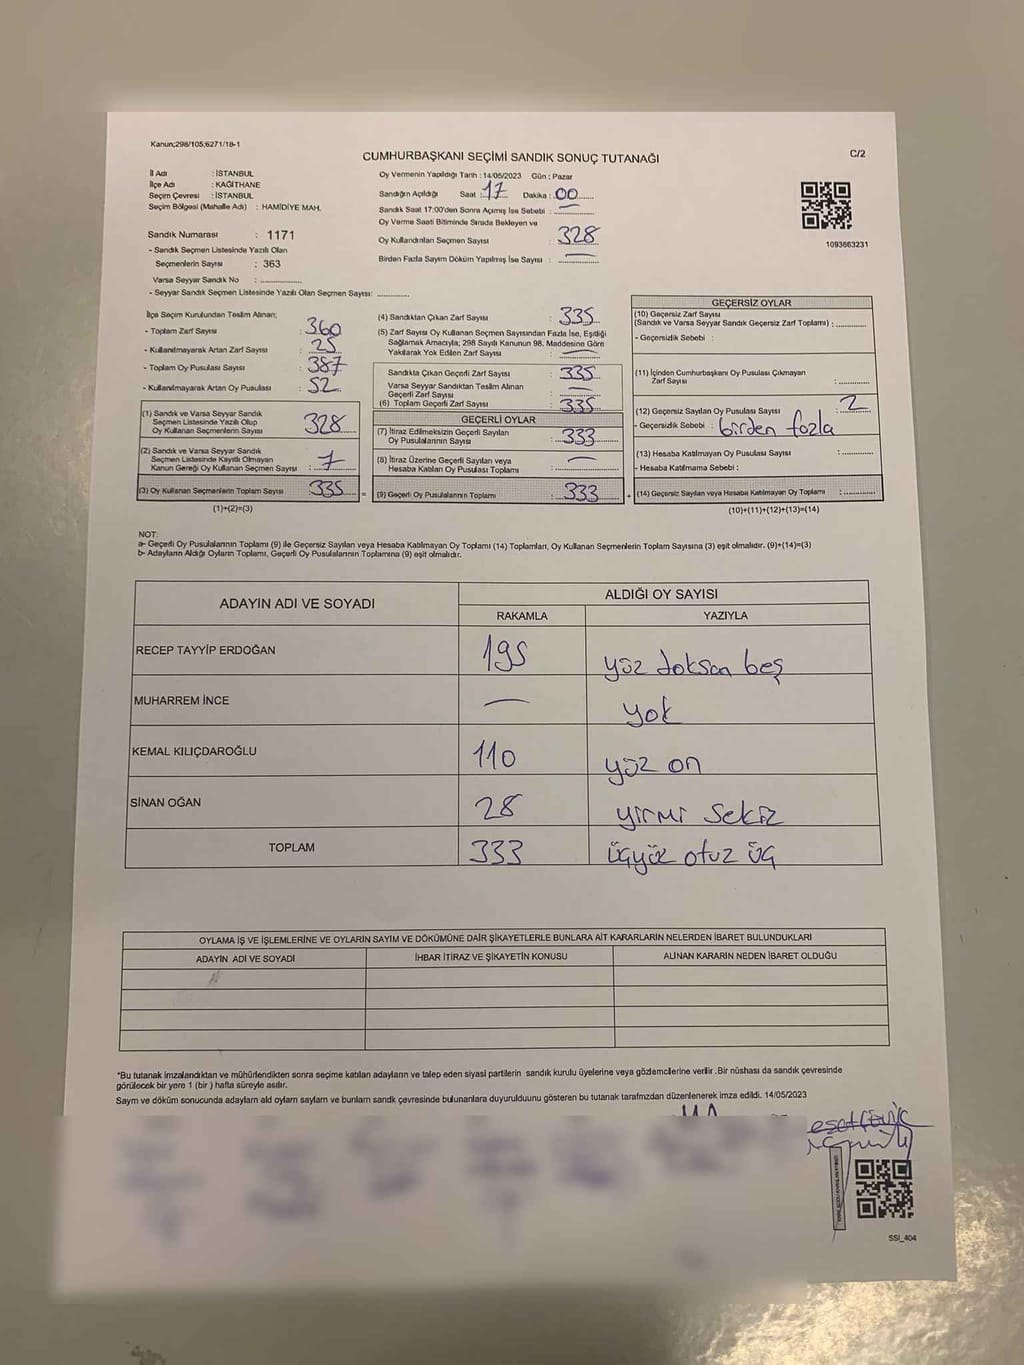 Kanun;298/105;6271/18-1
C/2
CUMHURBAŞKANI SEÇİMİ SANDIK SONUÇ TUTANAĞI
İl Adı : İSTANBUL
İlçe Adı : KAĞITHANE
Seçim Çevresi : İSTANBUL
Seçim Bölgesi (Mahalle Adı) : HAMİDİYE MAH.
Sandık Numarası : 1171
- Sandık Seçmen Listesinde Yazılı Olan
Seçmenlerin Sayısı : 363
Varsa Seyyar Sandık No :
- Seyyar Sandık Seçmen Listesinde Yazılı Olan Seçmen Sayısı:
Oy Vermenin Yapıldığı Tarih : 14/05/2023 Gün : Pazar
Sandığın Açıldığı Saat : 17 Dakika : 00
Sandık Saat 17:00'den Sonra Açımış İse Sebebi :
Oy Verme Saati Bitiminde Sırada Bekleyen ve
Oy Kullandırılan Seçmen Sayısı : 328
Birden Fazla Sayım Döküm Yapılmış İse Sayısı : —
1093663231
İlçe Seçim Kurulundan Teslim Alınan;
- Toplam Zarf Sayısı : 360
- Kullanılmayarak Artan Zarf Sayısı : 25
- Toplam Oy Pusulası Sayısı : 387
- Kullanılmayarak Artan Oy Pusulası : 52
(1) Sandık ve Varsa Seyyar Sandık
Seçmen Listesinde Yazılı Olup
Oy Kullanan Seçmenlerin Sayısı : 328
(2) Sandık ve Varsa Seyyar Sandık
Seçmen Listesinde Kayıtlı Olmayan
Kanun Gereği Oy Kullanan Seçmen Sayısı : 7
(3) Oy Kullanan Seçmenlerin Toplam Sayısı : 335
(1)+(2)=(3)
(4) Sandıktan Çıkan Zarf Sayısı : 335
(5) Zarf Sayısı Oy Kullanan Seçmen Sayısından Fazla İse, Eşitliği
Sağlamak Amacıyla; 298 Sayılı Kanunun 98. Maddesine Göre
Yakılarak Yok Edilen Zarf Sayısı : —
Sandıkta Çıkan Geçerli Zarf Sayısı : 335
Varsa Seyyar Sandıktan Teslim Alınan
Geçerli Zarf Sayısı : —
(6) Toplam Geçerli Zarf Sayısı : 335
GEÇERLİ OYLAR
(7) İtiraz Edilmeksizin Geçerli Sayılan
Oy Pusulalarının Sayısı : 333
(8) İtiraz Üzerine Geçerli Sayılan veya
Hesaba Katılan Oy Pusulası Toplamı : —
= (9) Geçerli Oy Pusulalarının Toplamı : 333
GEÇERSİZ OYLAR
(10) Geçersiz Zarf Sayısı
(Sandık ve Varsa Seyyar Sandık Geçersiz Zarf Toplamı) :
- Geçersizlik Sebebi :
(11) İçinden Cumhurbaşkanı Oy Pusulası Çıkmayan
Zarf Sayısı :
(12) Geçersiz Sayılan Oy Pusulası Sayısı : 2
- Geçersizlik Sebebi : birden fazla
(13) Hesaba Katılmayan Oy Pusulası Sayısı :
- Hesaba Katılmama Sebebi :
+ (14) Geçersiz Sayılan veya Hesaba Katılmayan Oy Toplamı :
(10)+(11)+(12)+(13)=(14)
NOT:
a- Geçerli Oy Pusulalarının Toplamı (9) ile Geçersiz Sayılan veya Hesaba Katılmayan Oy Toplamı (14) Toplamları, Oy Kullanan Seçmenlerin Toplam Sayısına (3) eşit olmalıdır. (9)+(14)=(3)
b- Adayların Aldığı Oyların Toplamı, Geçerli Oy Pusulalarının Toplamına (9) eşit olmalıdır.
ADAYIN ADI VE SOYADI
ALDIĞI OY SAYISI
RAKAMLA YAZIYLA
RECEP TAYYİP ERDOĞAN 195 yüz doksan beş
MUHARREM İNCE — yok
KEMAL KILIÇDAROĞLU 110 yüz on
SİNAN OĞAN 28 yirmi sekiz
TOPLAM 333 üçyüz otuz üç
OYLAMA İŞ VE İŞLEMLERİNE VE OYLARIN SAYIM VE DÖKÜMÜNE DAİR ŞİKAYETLERLE BUNLARA AİT KARARLARIN NELERDEN İBARET BULUNDUKLARI
ADAYIN ADI VE SOYADI İHBAR İTİRAZ VE ŞİKAYETİN KONUSU ALINAN KARARIN NEDEN İBARET OLDUĞU
*Bu tutanak imzalandıktan ve mühürlendikten sonra seçime katılan adayların ve talep eden siyasi partilerin sandık kurulu üyelerine veya gözlemcilerine verilir. Bir nüshası da sandık çevresinde
görülecek bir yere 1 (bir ) hafta süreyle asılır.
Sayım ve döküm sonucunda adayların aldı oyların sayıların ve bunların sandk çevresinde bulunanlara duyurulduunu gösteren bu tutanak tarafmzdan düzenlenerek imza edildi. 14/05/2023
SSI_404